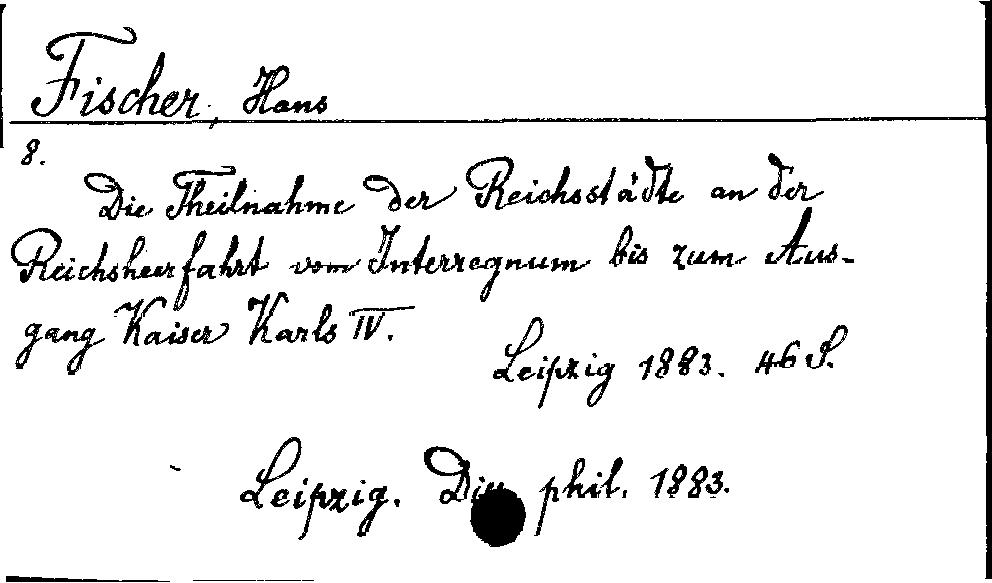 Fischer, Hans
8.
Die Theilnahme der Reichsstädte an der
Reichsheerfahrt vom Interregnum bis zum Aus-
gang Kaiser Karls IV.
Leipzig 1883. 46 S.
Leipzig. Diss. phil. 1883.